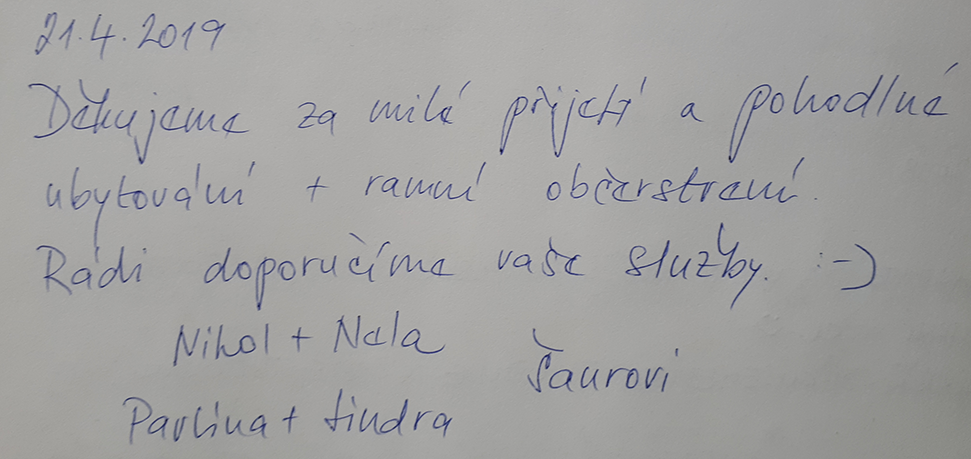 21.4.2019
Děkujeme za milé přijetí a pohodlné
ubytování + ranní občerstvení.
Rádi doporučíme vaše služby. :-)
Nikol + Nela
Šaurovi
Pavlína + Jindra